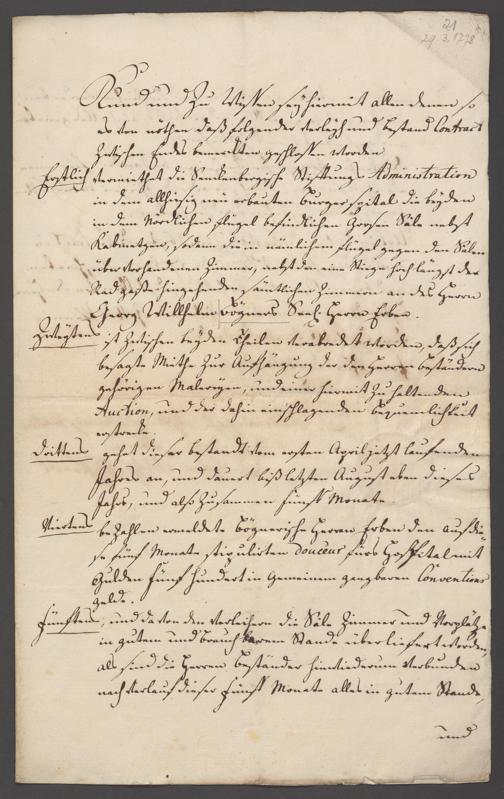 21
29.3.1778
Kund und Zu Wissen sey hiermit allen denen so
es von nöthen daß folgender Verleyh und bestand Contract
Zwischen Endes bemerkten geschlossen worden
Erstlich vermiethet die Senkenbergische Stifftungs Administration
in dem allhiesig neu erbauten Bürgerspital die beyden
in dem Nördlichen flügel befindlichen Grosen Säle nebst
Kabinetger, sodann die in nämlichem flügel gegen den Sälen
über vorhandenen Zimmer, nebst den eine Stiege hoch längst der
Radgasse hinziehenden sämtlichen Zimmern an des Herrn
Georg Willhelm Bögners Seel. Herrn Erben.
Zweytens ist Zwischen beyden Theilen verabredet worden, daß sich
besagte Miethe Zur Aufhängung der den Herren beständern
gehörigen Malereyen, und einer hiermit Zu haltenden
Auction, und der dahin einschlagenden bequemlichkeit
erstrecke.
Drittens gehet dieser bestandt vom ersten April jetzt laufenden
Jahrs an, und dauert biß letzten August eben dieses
Jahrs, und also Zusammen fünff Monate
Viertens bezahlen ermeldete Bögnerische Herrn Erben den auf die-
se fünf Monate stipulirten douceur fürs Hospital mit
Gulden fünf hundert in gemeinem gangbaren Conventions
geld.
Fünftens, und da von den Verleihern die Säle Zimmer und Vorplätze
in gutem und brauchbarem Stande überliefert worden,
als sind die Herren beständer hinwiederum verbunden
nach Verlauf dieser fünff Monate alles in gutem Stande,
und